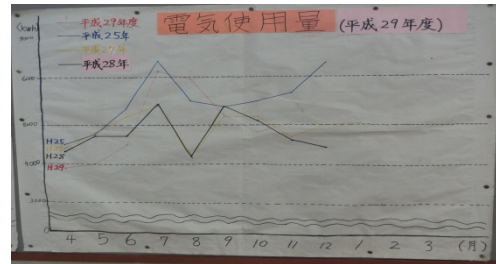 電気使用量 (平成29年度)
(kwh)
平成29年度
平成25年
平成27年
平成28年
H25
H28
H29
0
4 5 6 7 8 9 10 11 12 1 2 3 (月)